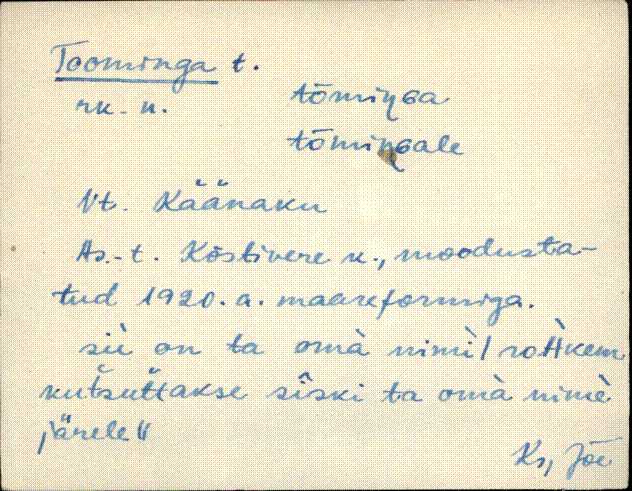 Toominga t.
rk. n. tōmiŋɢa
tōmiŋɢale
Vt. Käänaku
As.-t. Kostivere k., moodusta-
tud 1920. a. maareformiga.
siì on ta omà nimì / rohkem
kutsuttakse sīski ta omà nimè
järele "
Ks, Jõe